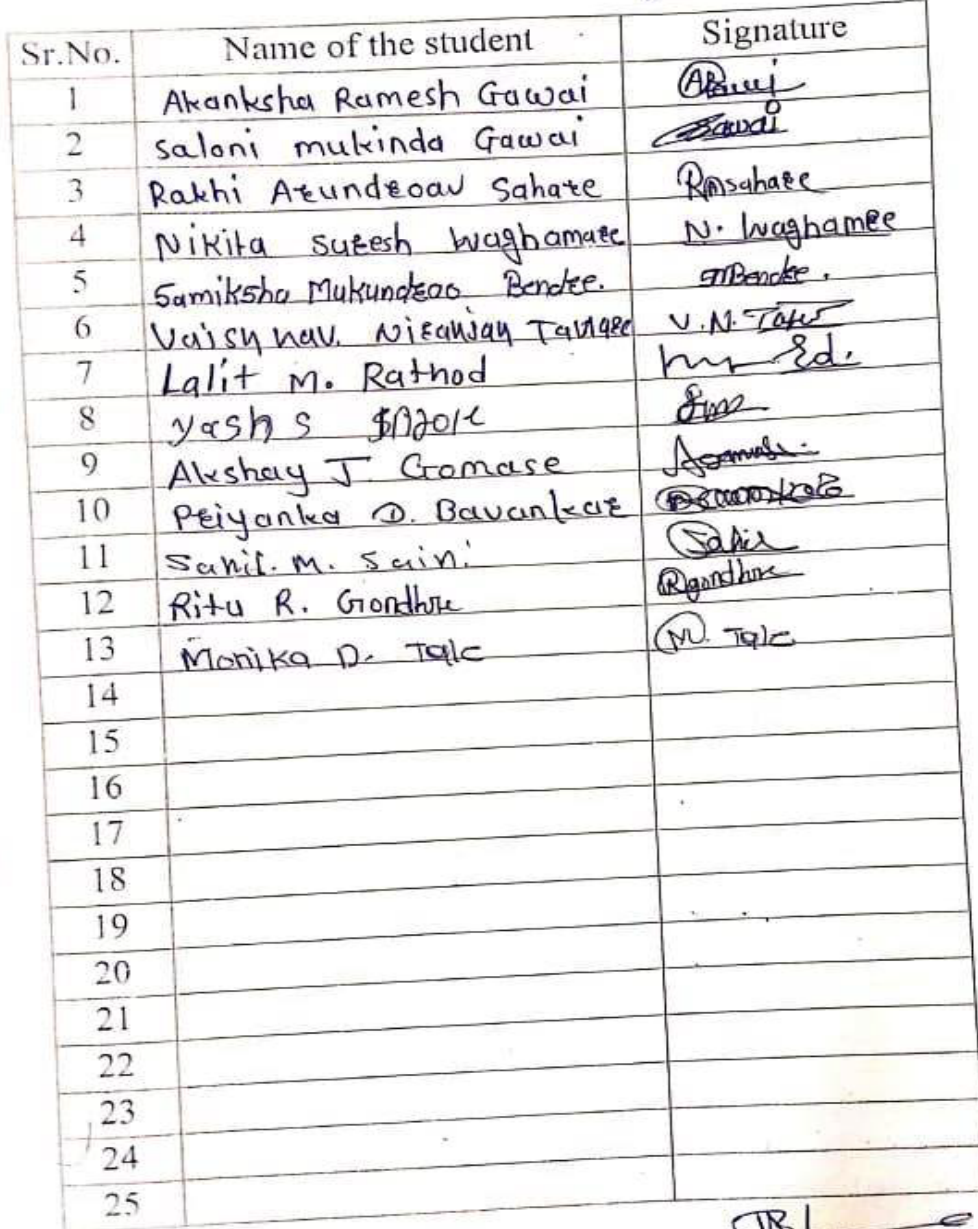 Sr.No. Name of the student Signature
1 Akanksha Ramesh Gawai
2 saloni mukinda Gawai Gawai
3 Rakhi Arundraov Sahare RAsahare
4 Nikita suresh waghamare N. waghamare
5 Samiksha Mukundrao Bendre. Bendre.
6 Vaishnav. Niranjan Tayare V.N.
7 Lalit M. Rathod
8 yash s
9 Akshay J. Gomase
10 Priyanka D. Bavankar
11 Sahil. M. Saini Sahil
12 Ritu R. Gondhre Rgondhre
13 Monika D. Tale M. Tale
14
15
16
17
18
19
20
21
22
23
24
25